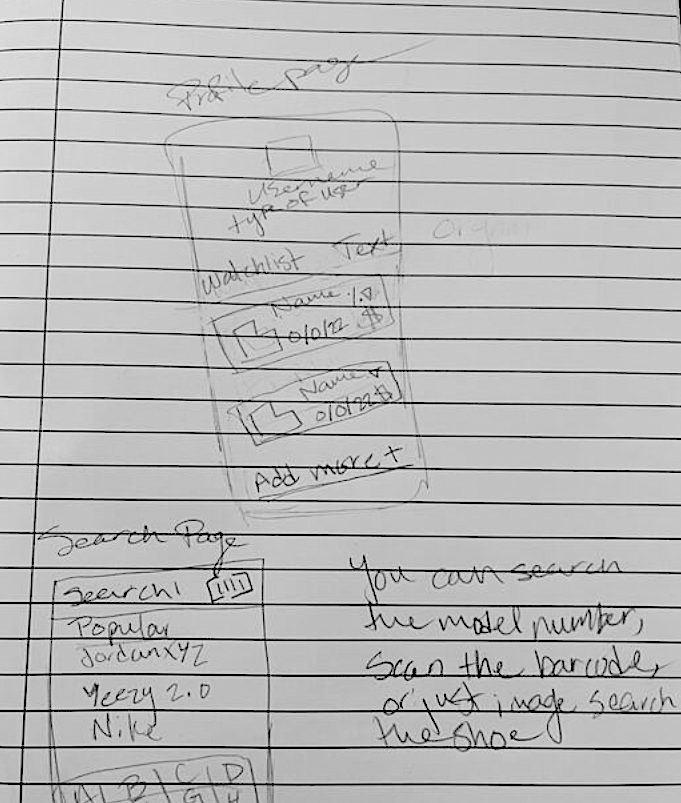 Profile page
Username
type of user
Watchlist Text
Name %
0/0/22 $
Name
0/0/22 $
Add more +
Search Page
Search
Popular
Jordan XYZ
Yeezy 2.0
Nike
A B C D
G H
You can search
the model number,
scan the barcode,
or just image search
the shoe